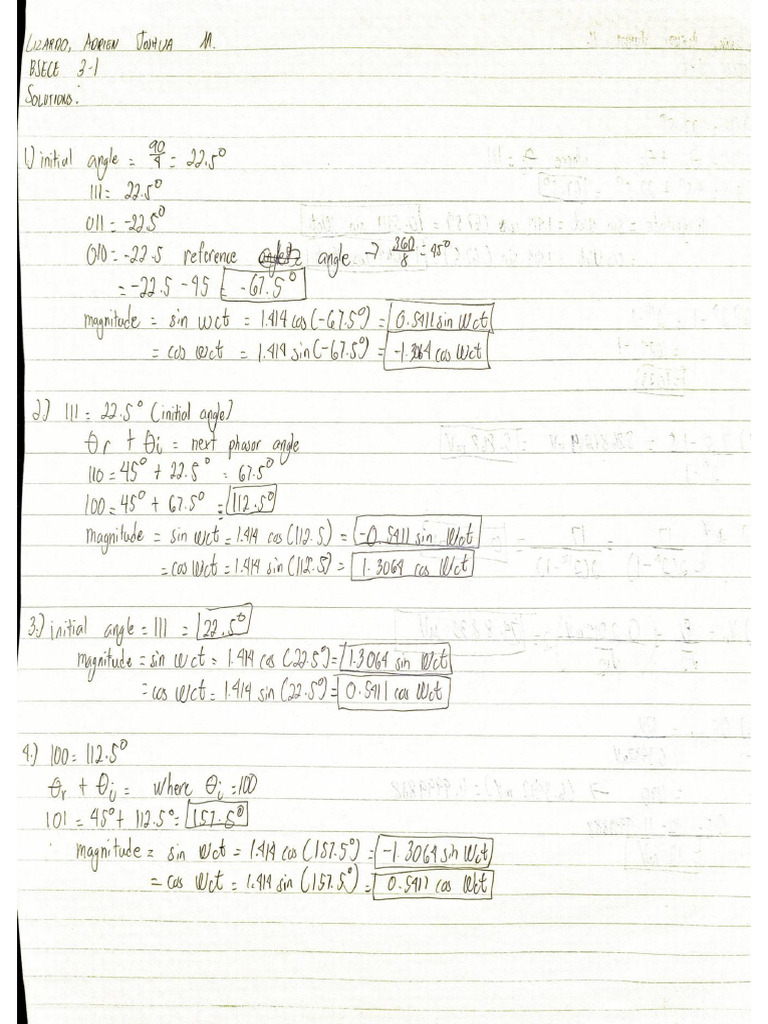 LIZARDO, ADRIEN JOSHUA M.
BSECE 3-1
SOLUTIONS:
1) initial angle = 90/4 = 22.5°
111 = 22.5°
011 = -22.5°
010 = -22.5 reference angle → 360/8 = 45°
= -22.5 - 45 = -67.5°
magnitude = sin Wct = 1.414 cos(-67.5°) = 0.5411 sin Wct
= cos Wct = 1.414 sin(-67.5°) = -1.3064 cos Wct
2.) 111 = 22.5° (initial angle)
θr + θi = next phasor angle
110 = 45° + 22.5° = 67.5°
100 = 45° + 67.5° = 112.5°
magnitude = sin Wct = 1.414 cos(112.5) = -0.5411 sin Wct
= cos Wct = 1.414 sin(112.5) = 1.3064 cos Wct
3.) initial angle = 111 = 22.5°
magnitude = sin Wct = 1.414 cos(22.5°) = 1.3064 sin Wct
= cos Wct = 1.414 sin(22.5°) = 0.5411 cos Wct
4.) 100 = 112.5°
θr + θi = where θi = 100
101 = 45° + 112.5° = 157.5°
magnitude = sin Wct = 1.414 cos(157.5°) = -1.3064 sin Wct
= cos Wct = 1.414 sin(157.5°) = 0.5411 cos Wct